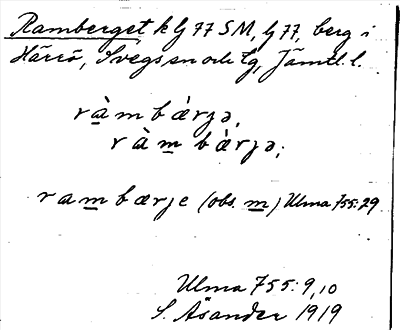 Ramberget k G 77 SM, G 77, berg i
Härrö, Svegs sn och tg, Jämtl. l.
rà̱mbàrgə,
ràm̱ bàrgə;
ram̱bærje (obs. m̱) Ulma 755:29
Ulma 755: 9,10
S. Åsander 1919